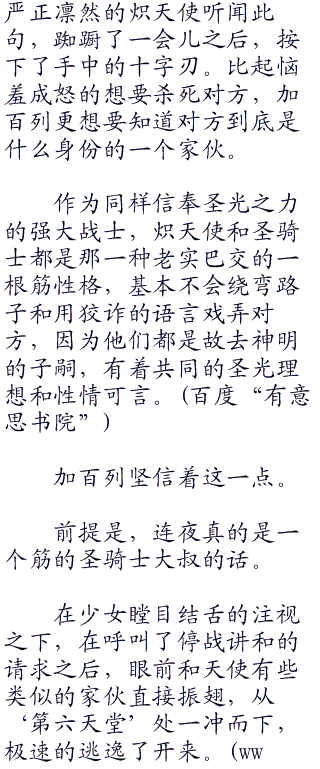 严正凛然的炽天使听闻此
句，踟蹰了一会儿之后，按
下了手中的十字刃。比起恼
羞成怒的想要杀死对方，加
百列更想要知道对方到底是
什么身份的一个家伙。
作为同样信奉圣光之力
的强大战士，炽天使和圣骑
士都是那一种老实巴交的一
根筋性格，基本不会绕弯路
子和用狡诈的语言戏弄对
方，因为他们都是故去神明
的子嗣，有着共同的圣光理
想和性情可言。(百度“有意
思书院”)
加百列坚信着这一点。
前提是，连夜真的是一
个筋的圣骑士大叔的话。
在少女瞠目结舌的注视
之下，在呼叫了停战讲和的
请求之后，眼前和天使有些
类似的家伙直接振翅，从
‘第六天堂’处一冲而下，
极速的逃逸了开来。(ww